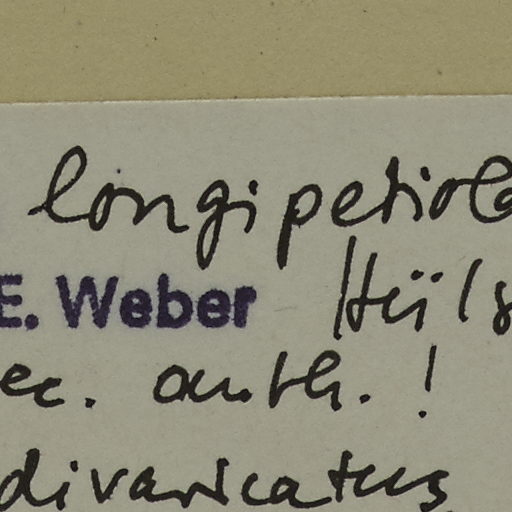 longipetiol
E. Weber Hüls
ec. auth. !
divaricatus